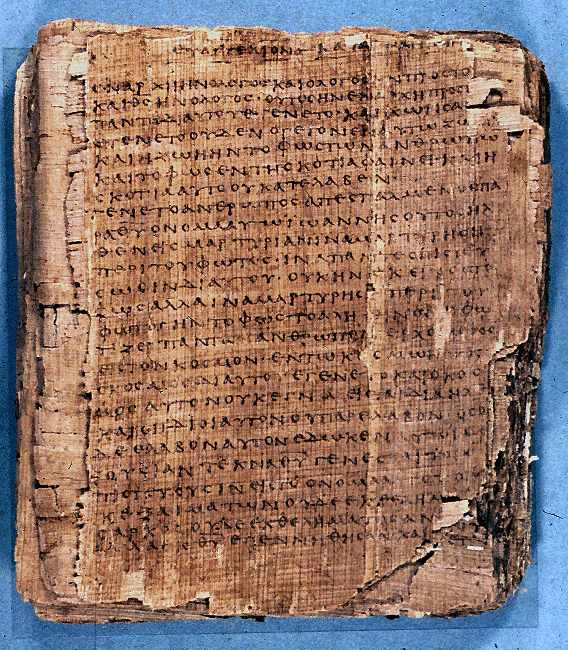 ΕΥΑΓΓΕΛΙΟΝ ΚΑΤΑ
ΕΝ ΑΡΧΗ ΗΝ Ο ΛΟΓΟΣ ΚΑΙ Ο ΛΟΓΟΣ ΗΝ ΠΡΟΣ ΤΟ
ΚΑΙ ΘΣ ΗΝ Ο ΛΟΓΟΣ· ΟΥΤΟΣ ΗΝ ΕΝ ΑΡΧΗ ΠΡΟΣ
ΠΑΝΤΑ ΔΙ ΑΥΤΟΥ ΕΓΕΝΕΤΟ· ΚΑΙ ΧΩΡΙΣ ΑΥ
ΕΓΕΝΕΤΟ ΟΥΔΕΝ Ο ΓΕΓΟΝΕΝ ΕΝ ΑΥΤΩ ΖΩ
ΚΑΙ Η ΖΩΗ ΗΝ ΤΟ ΦΩΣ ΤΩΝ ΑΝΘΡΩΠΩ
ΚΑΙ ΤΟ ΦΩΣ ΕΝ ΤΗ ΣΚΟΤΙΑ ΦΑΙΝΕΙ· ΚΑΙ Η
ΣΚΟΤΙΑ ΑΥΤΟ ΟΥ ΚΑΤΕΛΑΒΕΝ
ΕΓΕΝΕΤΟ ΑΝΘΡΩΠΟΣ ΑΠΕΣΤΑΛΜΕΝΟΣ ΠΑ
ΡΑ ΘΥ ΟΝΟΜΑ ΑΥΤΩ ΙΩΑΝΝΗΣ ΟΥΤΟΣ ΗΛ
ΘΕΝ ΕΙΣ ΜΑΡΤΥΡΙΑΝ ΙΝΑ ΜΑΡΤΥΡΗΣΗ
ΠΕΡΙ ΤΟΥ ΦΩΤΟΣ· ΙΝΑ ΠΑΝΤΕΣ ΠΙΣΤΕΥ
ΣΩΣΙΝ ΔΙ ΑΥΤΟΥ· ΟΥΚ ΗΝ ΕΚΕΙΝΟΣ ΤΟ
ΦΩΣ ΑΛΛΑ ΙΝΑ ΜΑΡΤΥΡΗΣΗ ΠΕΡΙ ΤΟΥ
ΦΩΤΟΣ ΗΝ ΤΟ ΦΩΣ ΤΟ ΑΛΗΘΙΝΟΝ Ο ΦΩ
ΤΙΖΕΙ ΠΑΝΤΑ ΑΝΘΡΩΠΟΝ ΕΡΧΟΜΕΝΟΝ
ΕΙΣ ΤΟΝ ΚΟΣΜΟΝ· ΕΝ ΤΩ ΚΟΣΜΩ ΗΝ
ΔΙ ΑΥΤΟΥ ΕΓΕΝΕΤΟ ΚΑΙ Ο ΚΟΣ
ΜΟΣ ΑΥΤΟΝ ΟΥΚ ΕΓΝΩ· ΕΙΣ ΤΑ ΙΔΙΑ ΗΛ
ΚΑΙ ΟΙ ΙΔΙΟΙ ΑΥΤΟΝ ΟΥ ΠΑΡΕΛΑΒΟΝ· ΟΣΟΙ
ΔΕ ΕΛΑΒΟΝ ΑΥΤΟΝ ΕΔΩΚΕΝ ΑΥΤΟΙΣ
ΟΥΣΙΑΝ ΤΕΚΝΑ ΘΥ ΓΕΝΕΣ
ΕΙΣ ΤΟ ΟΝΟΜΑ
ΑΙΜΑΤΩΝ ΟΥΔΕ ΕΚ ΘΕΛΗΜΑ
ΣΑΡΚΟΣ ΟΥΔΕ ΕΚ ΘΕΛΗΜΑΤΟΣ
ΑΛΛΑ ΕΚ ΘΥ ΕΓΕΝΝΗΘΗΣΑΝ ΚΑΙ